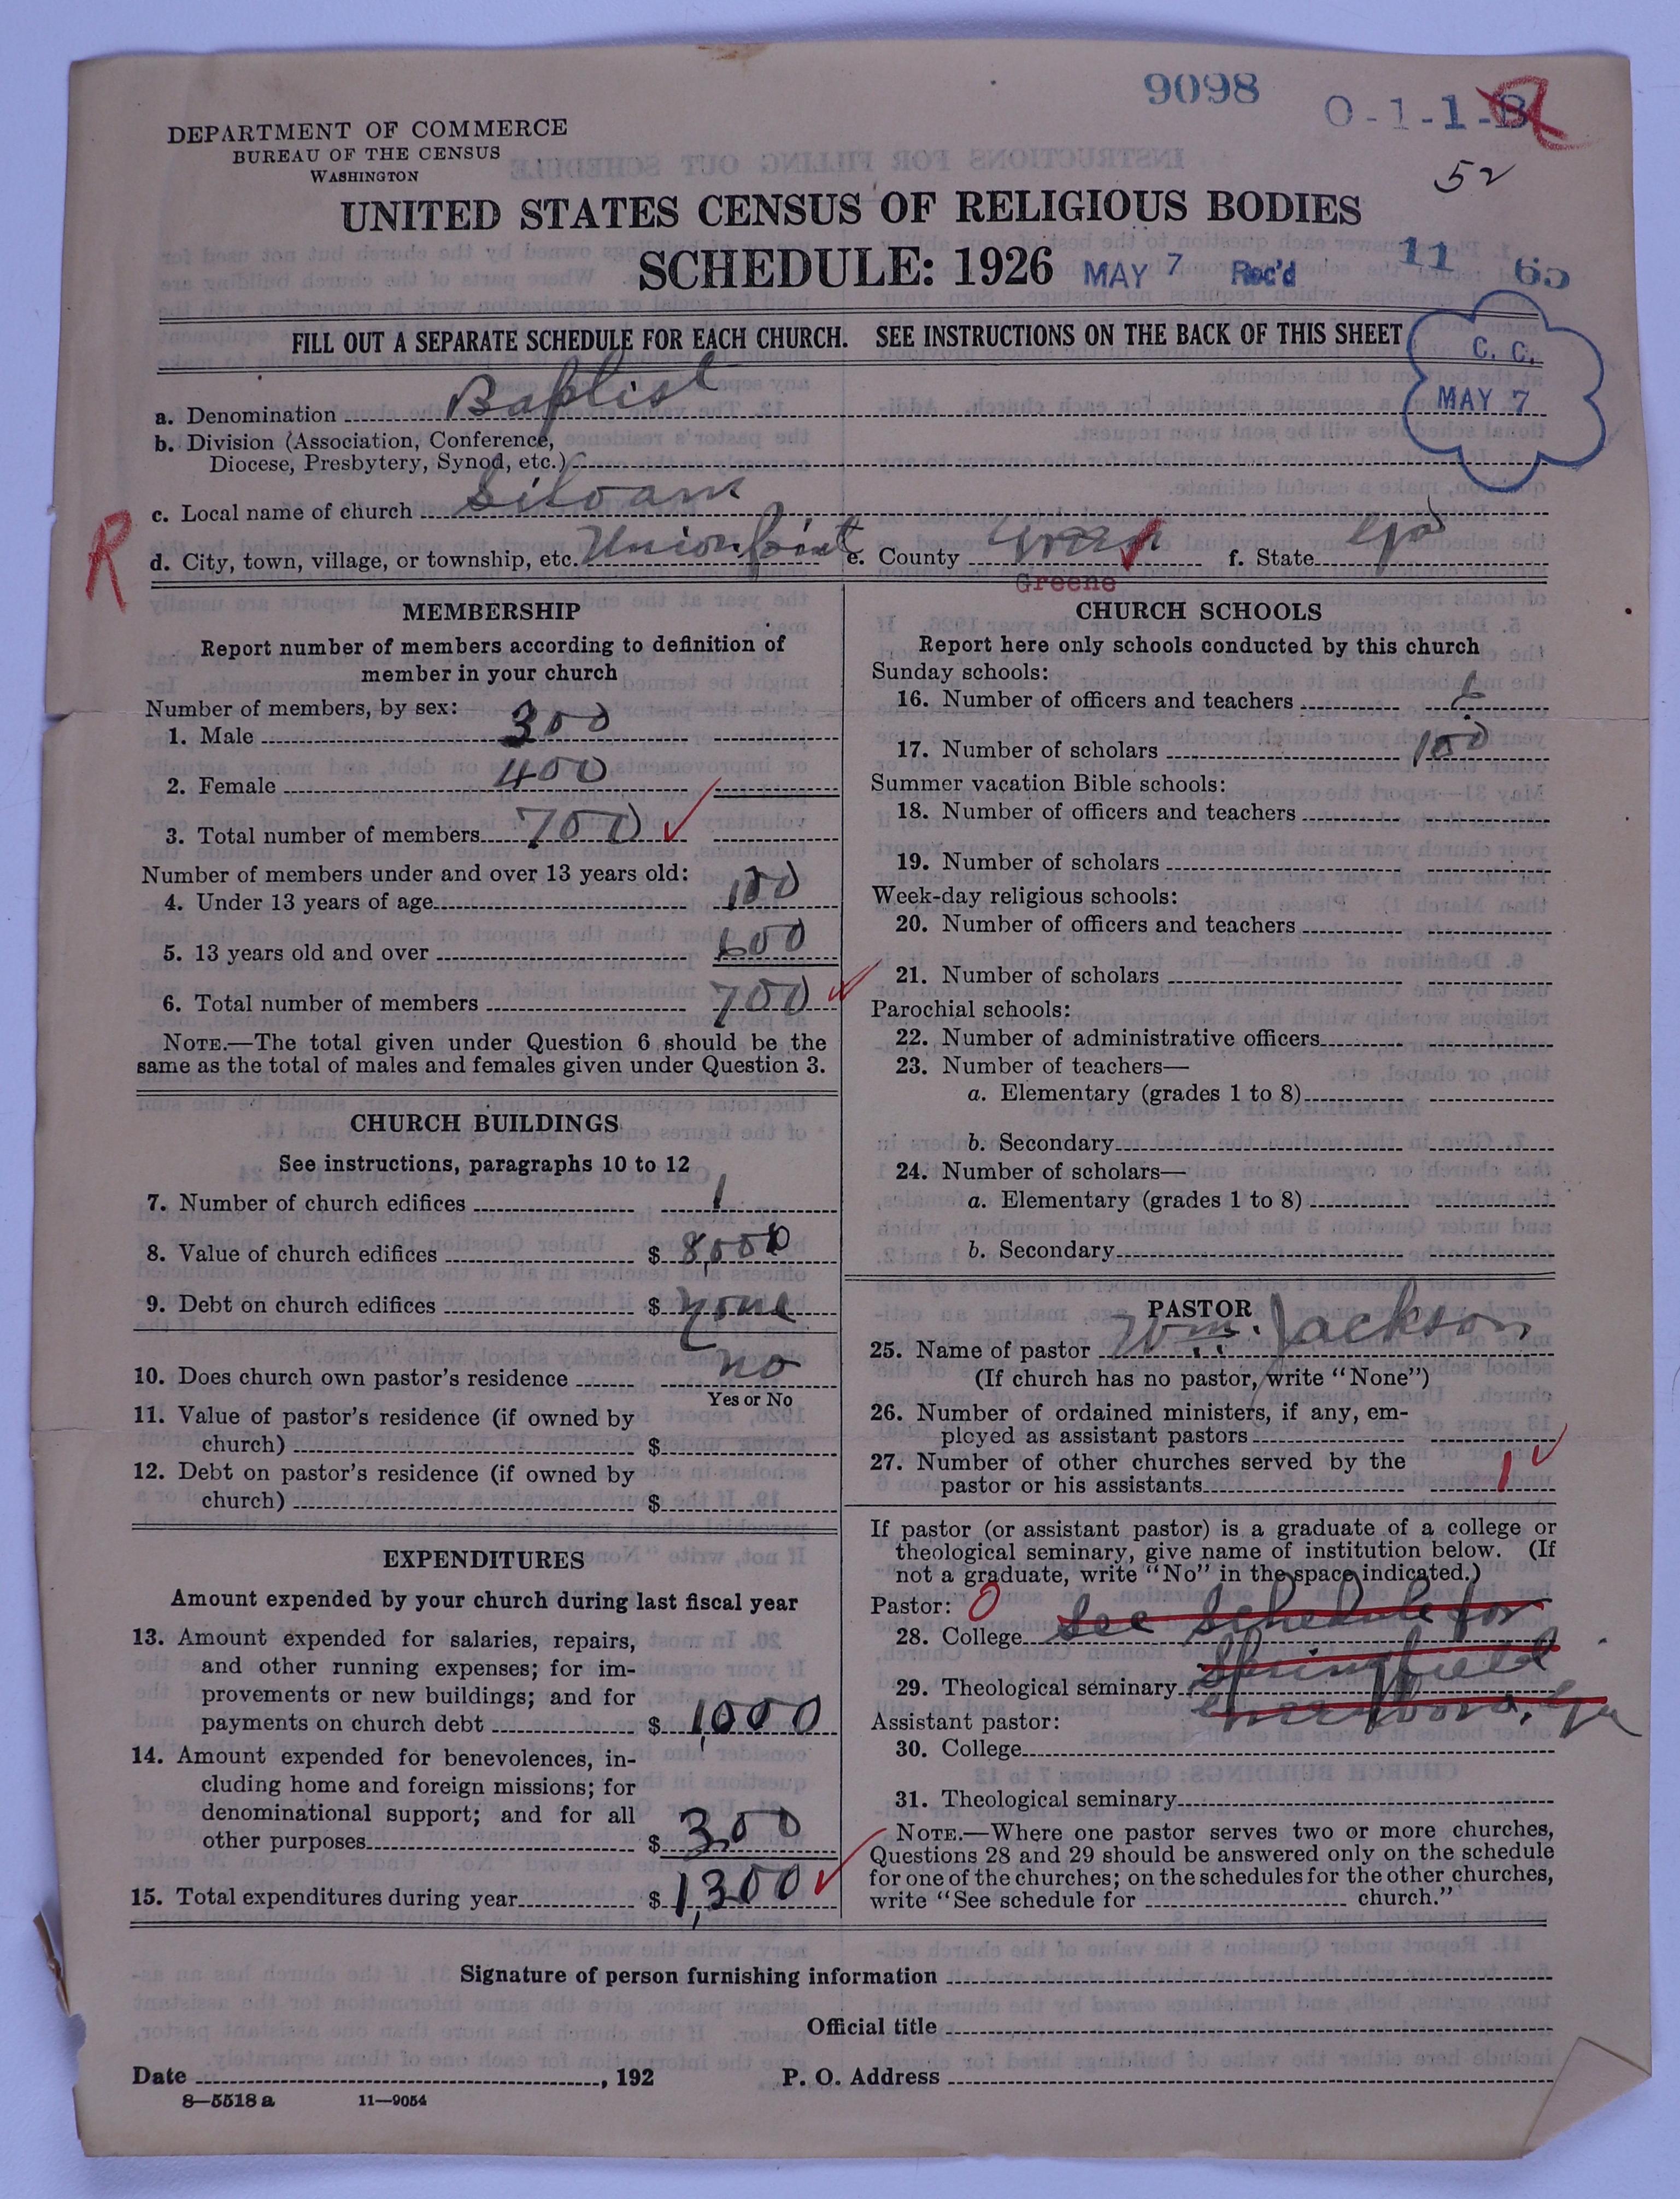 9098
0-1-1-B
52
DEPARTMENT OF COMMERCE
BUREAU OF THE CENSUS
WASHINGTON
UNITED STATES CENSUS OF RELIGIOUS BODIES
SCHEDULE: 1926
MAY 7 Rec'd
11 65
FILL OUT A SEPARATE SCHEDULE FOR EACH CHURCH. SEE INSTRUCTIONS ON THE BACK OF THIS SHEET
C. C.
MAY 7
a. Denomination Baptist
b. Division (Association, Conference,
Diocese, Presbytery, Synod, etc.)
c. Local name of church Siloam
R
d. City, town, village, or township, etc. Union Point e. County Green f. State Ga
Greene
MEMBERSHIP
Report number of members according to definition of
member in your church
Number of members, by sex:
1. Male 300
2. Female 400
3. Total number of members 700
Number of members under and over 13 years old:
4. Under 13 years of age 100
5. 13 years old and over 600
6. Total number of members 700
NOTE.—The total given under Question 6 should be the
same as the total of males and females given under Question 3.
CHURCH BUILDINGS
See instructions, paragraphs 10 to 12
7. Number of church edifices 1
8. Value of church edifices $ 8,000
9. Debt on church edifices $ none
10. Does church own pastor's residence no
Yes or No
11. Value of pastor's residence (if owned by
church) $
12. Debt on pastor's residence (if owned by
church) $
EXPENDITURES
Amount expended by your church during last fiscal year
13. Amount expended for salaries, repairs,
and other running expenses; for im-
provements or new buildings; and for
payments on church debt $ 1,000
14. Amount expended for benevolences, in-
cluding home and foreign missions; for
denominational support; and for all
other purposes $ 300
15. Total expenditures during year $ 1,300
CHURCH SCHOOLS
Report here only schools conducted by this church
Sunday schools:
16. Number of officers and teachers 6
17. Number of scholars 100
Summer vacation Bible schools:
18. Number of officers and teachers
19. Number of scholars
Week-day religious schools:
20. Number of officers and teachers
21. Number of scholars
Parochial schools:
22. Number of administrative officers
23. Number of teachers—
a. Elementary (grades 1 to 8)
b. Secondary
24. Number of scholars—
a. Elementary (grades 1 to 8)
b. Secondary
PASTOR
25. Name of pastor Wm. Jackson
(If church has no pastor, write "None")
26. Number of ordained ministers, if any, em-
ployed as assistant pastors
27. Number of other churches served by the
pastor or his assistants 1
If pastor (or assistant pastor) is a graduate of a college or
theological seminary, give name of institution below. (If
not a graduate, write "No" in the space indicated.)
Pastor: 0
28. College See Schedule for
29. Theological seminary Springfield
Greensboro, Ga
Assistant pastor:
30. College
31. Theological seminary
NOTE.—Where one pastor serves two or more churches,
Questions 28 and 29 should be answered only on the schedule
for one of the churches; on the schedules for the other churches,
write "See schedule for church."
Signature of person furnishing information
Official title
Date , 192
P. O. Address
8—5518 a 11—9054